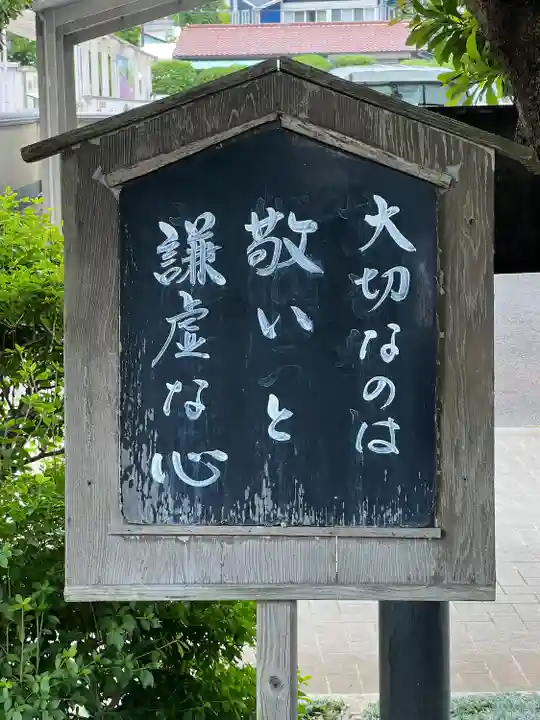 大切なのは
敬いと
謙虚な心